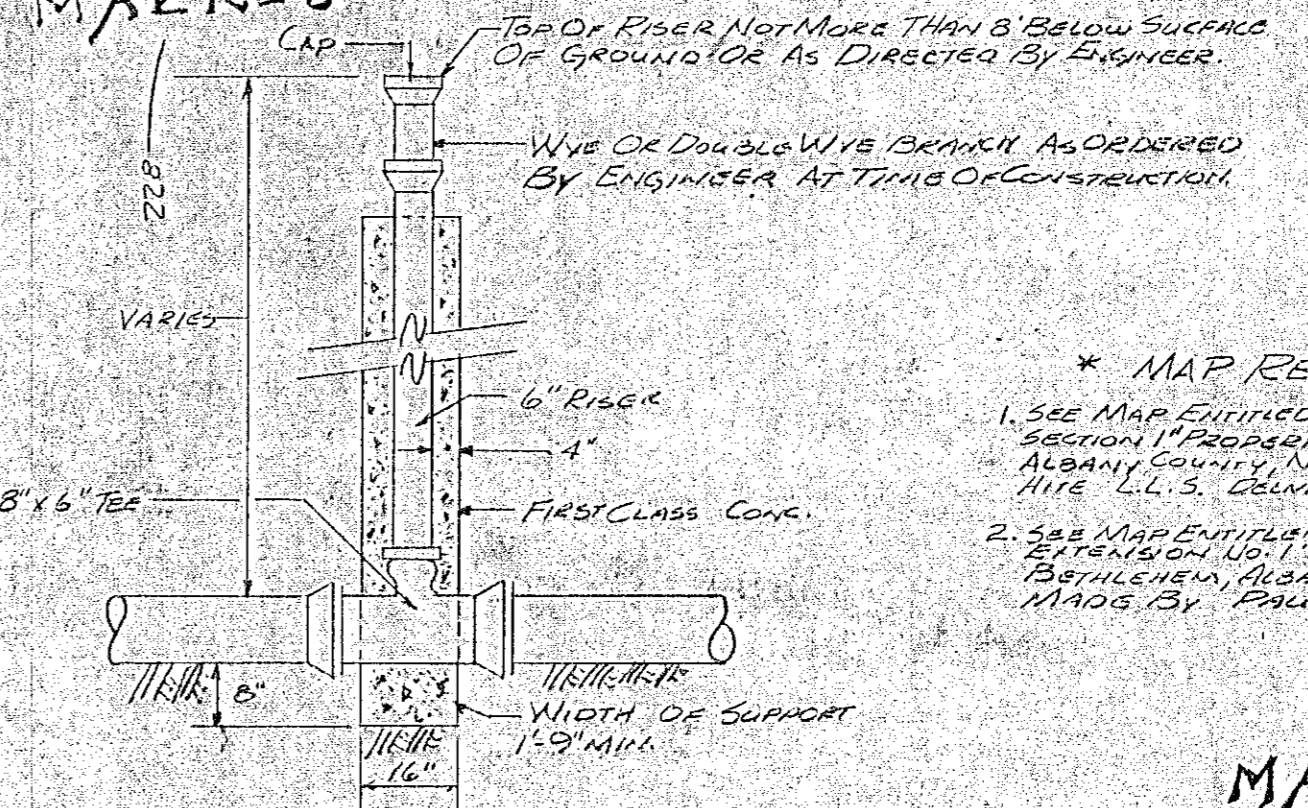 CAP
TOP OF RISER NOT MORE THAN 8' BELOW SURFACE
OF GROUND OR AS DIRECTED BY ENGINEER.
822
WYE OR DOUBLE WYE BRANCH AS ORDERED
BY ENGINEER AT TIME OF CONSTRUCTION.
VARIES
6" RISER
4"
8" X 6" TEE
FIRST CLASS CONC.
8"
WIDTH OF SUPPORT
1'-9" MIN.
16"
* MAP RE
1. SEE MAP ENTITLED
SECTION 1" PROPER
ALBANY COUNTY, N
HITE L.L.S. DELM
2. SEE MAP ENTITLE
EXTENSION NO. 1
BETHLEHEM, ALBA
MADE BY PAU
MA